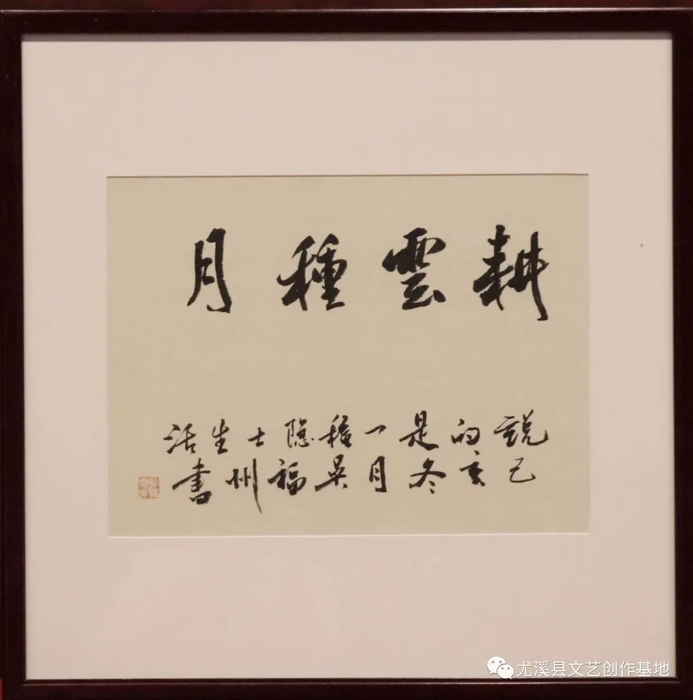 耕雲種月
說的是一種隱士生活
己亥冬月吳福州書
尤溪县文艺创作基地